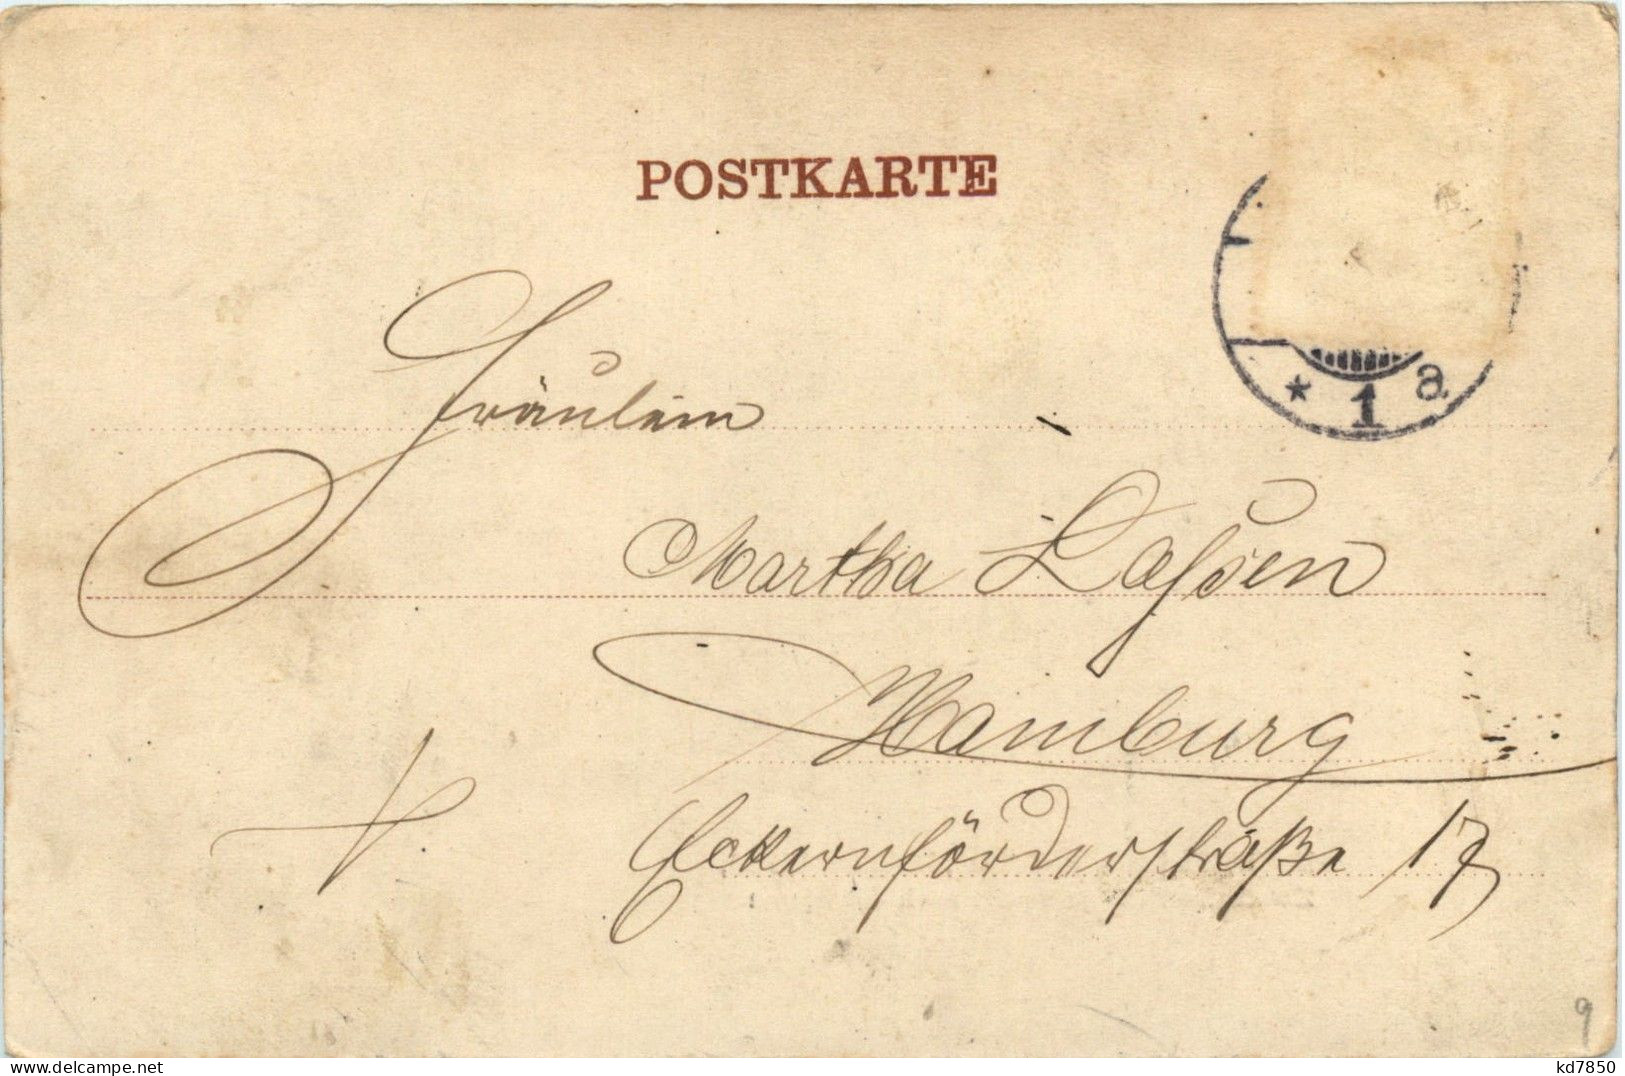 POSTKARTE
* 1 a
Fräulein
Martha Lassen
Hamburg
Eckernförderstraße 17
9
delcampe.net
kd7850